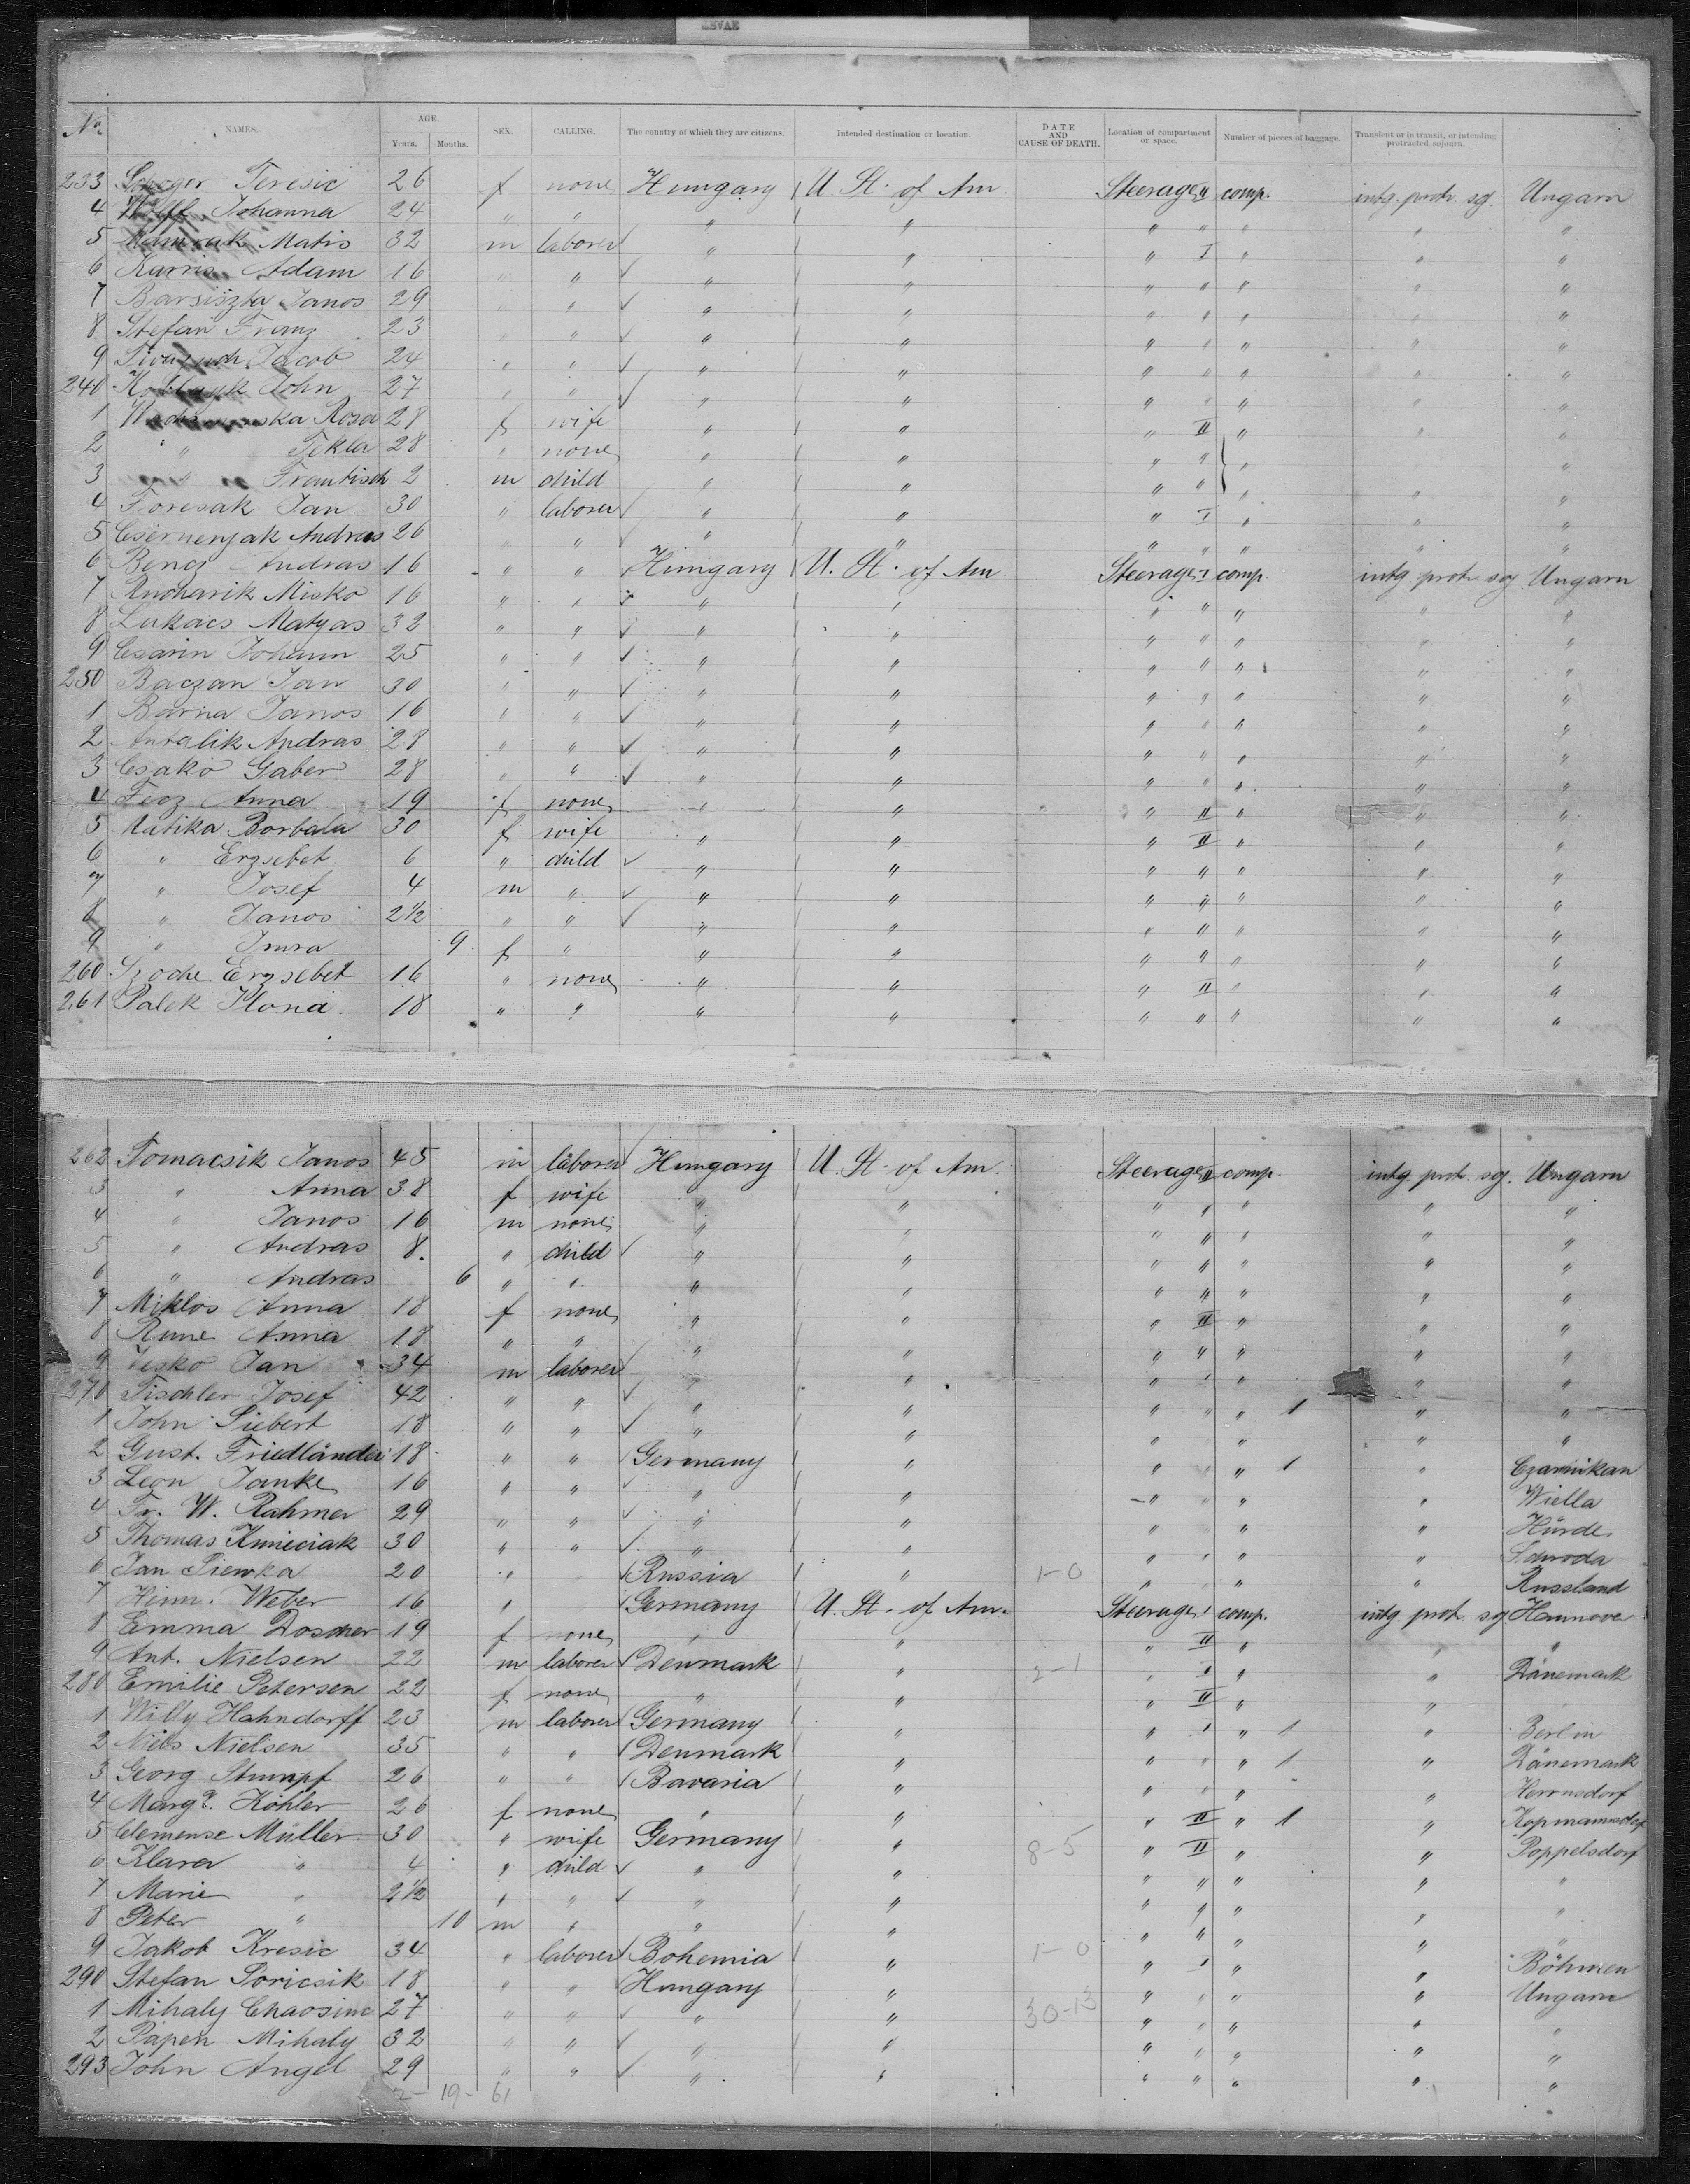 No. NAMES. AGE. Years. Months. SEX. CALLING. The country of which they are citizens. Intended destination or location. DATE AND CAUSE OF DEATH. Location of compartment or space. Number of pieces of baggage. Transient or in transit, or intending protracted sojourn.
233 Teresie 26 f none Hungary U. St. of Am Steerage II comp. intg. protr. soj. Ungarn
4 Wolff Johanna 24 " " " " " " " " "
5 Matis 32 m laborer " " " I " " "
6 Karris Adam 16 " " " " " " " " "
7 Barsiszta Janos 29 " " " " " " " " "
8 Stefan Franz 23 " " " " " " " " "
9 Jacob 24 " " " " " " " " "
240 John 27 " " " " " " " " "
1 Rosa 28 f wife " " " II " " "
2 " Tekla 28 " none " " " " " "
3 " Frantisch 2 m child " " " " " " "
4 Foresak Jan 30 " laborer " " " I " " "
5 Csernenyak Andras 26 " " " " " " " " "
6 Bencz Andras 16 " " Hungary U. St. of Am Steerage I comp. intg. protr. soj. Ungarn
7 Rucharik Misko 16 " " " " " " " " "
8 Lukacs Matyas 32 " " " " " " " " "
9 Csarin Johann 25 " " " " " " " " "
250 Baczan Jan 30 " " " " " " " " "
1 Barna Janos 16 " " " " " " " " "
2 Antalik Andras 28 " " " " " " " " "
3 Csako Gaber 28 " " " " " " " " "
4 Fecz Anna 19 f none " " " II " " "
5 Mutika Borbala 30 f wife " " " II " " "
6 " Erzsebet 6 " child " " " " " " "
7 " Josef 4 m " " " " " " " "
8 " Janos 2 1/2 " " " " " " " " "
9 " Imra 9 f " " " " " " " "
260 Erzsebet 16 " none " " " II " " "
261 Palek Ilona 18 " " " " " " " " "
262 Tomacsik Janos 45 m laborer Hungary U. St. of Am. Steerage II comp. intg. protr. soj. Ungarn
3 " Anna 38 f wife " " " " " " "
4 " Janos 16 m none " " " " " " "
5 " Andras 8 " child " " " " " " "
6 " Andras 6 " " " " " " " " "
7 Miklos Anna 18 f none " " " II " " "
8 Rune Anna 18 " " " " " " " " "
9 Jesko Jan 34 m laborer " " " " " " "
270 Tischler Josef 42 " " " " " " " 1 " "
1 John Siebert 18 " " " " " " " "
2 Gust. Friedländer 18 " " Germany " " " " 1 " Czarnikau
3 Leon Janke 16 " " " " " " " " Wiella
4 Fr. W. Rahmer 29 " " " " " " " " Hörde
5 Thomas Kmieciak 30 " " " " " " " " Schroda
6 Jan Siewka 20 " Russia " 1-0 " " " " Russland
7 Heinr. Weber 16 " Germany U. St. of Am. Steerage I comp. intg. protr. soj. Hannover
8 Emma Doscher 19 f none " " " II " " "
9 Ant. Nielsen 22 m laborer Denmark " 2-1 " I " " Dänemark
280 Emilie Petersen 22 f none " " " II " "
1 Willy Hahndorff 23 m laborer Germany " " I " 1 " Berlin
2 Niels Nielsen 35 " " Denmark " " " " 1 " Dänemark
3 Georg Stumpf 26 " " Bavaria " " " " " Herrnsdorf
4 Marg. Köhler 26 f none " " " II " 1 "
5 Clemense Müller 30 " wife Germany " 8-5 " II " " Poppelsdorf
6 Klara " 4 " child " " " " " " "
7 Marie " 2 1/2 " " " " " " " " "
8 Peter " 10 m " " " " " " " "
9 Jakob Kresic 34 " laborer Bohemia " 1-0 " I " " Böhmen
290 Stefan Poricsik 18 " " Hungary " " " " " Ungarn
1 Mihaly 27 " " " " 30-13 " " " " "
2 Papen Mihaly 32 " " " " " " " " "
293 John Angel 29 " " " " " " " " "
2- 19- 61